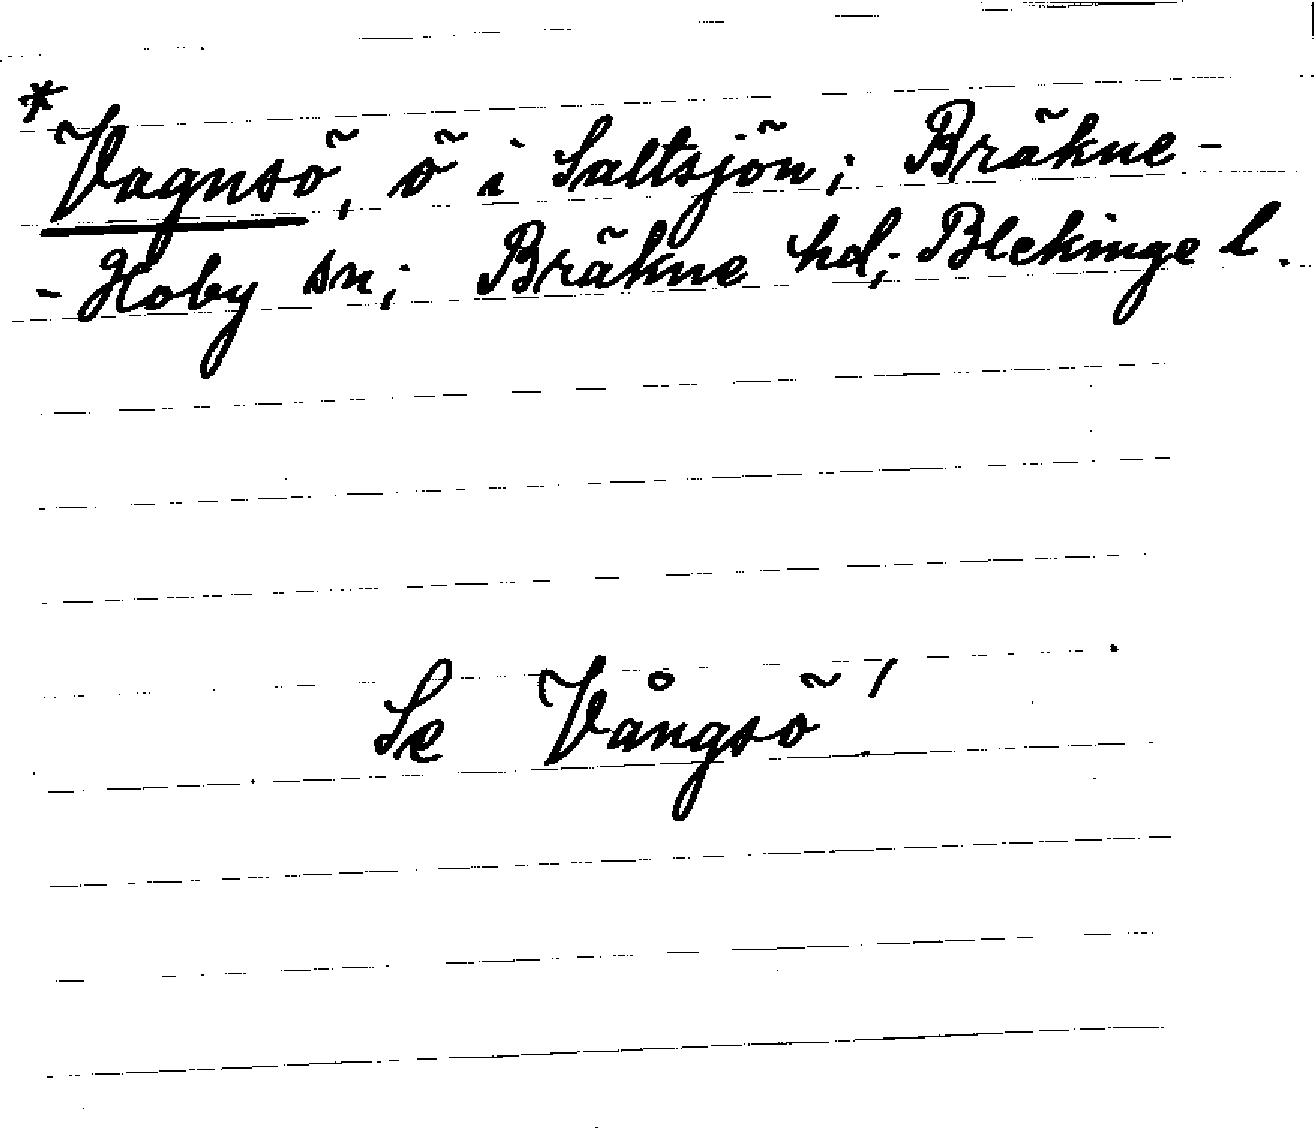 *Vagnsö, ö i Saltsjön; Bräkne-
-Hoby sn; Bräkne hd; Blekinge l.
Se Vångsö!